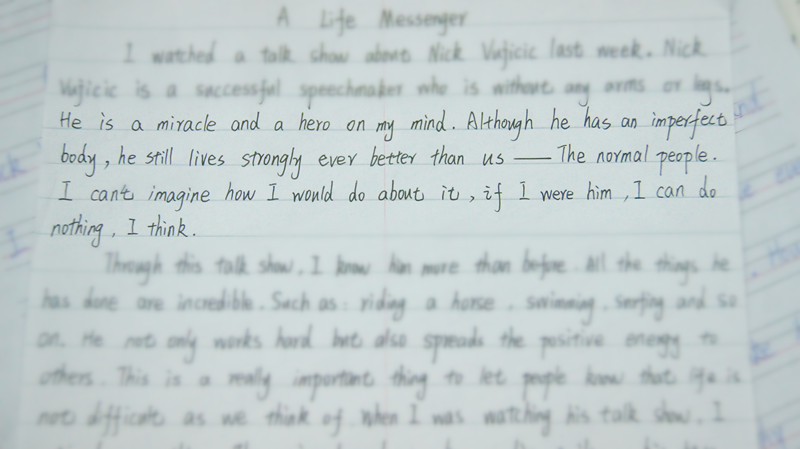 A Life Messenger
I watched a talk show about Nick Vujicic last week. Nick
Vujicic is a successful speechmaker who is without any arms or legs.
He is a miracle and a hero on my mind. Although he has an imperfect
body, he still lives strongly ever better than us — The normal people.
I can't imagine how I would do about it, if I were him, I can do
nothing, I think.
Through this talk show, I know him more than before. All the things he
has done are incredible. Such as: riding a horse, swimming, surfing and so
on. He not only works hard but also spreads the positive energy to
others. This is a really important thing to let people know that life is
not difficult as we think of. When I was watching his talk show, I